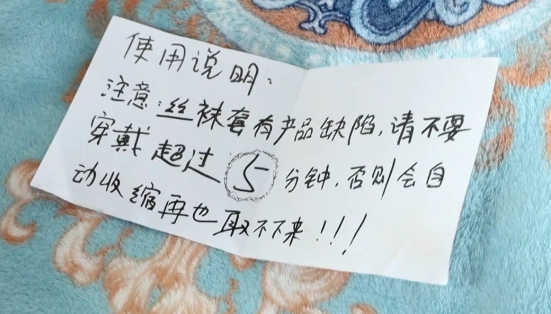 使用说明：
注意：丝袜套有产品缺陷，请不要
穿戴超过5分钟，否则会自
动收缩再也取不下来！！！